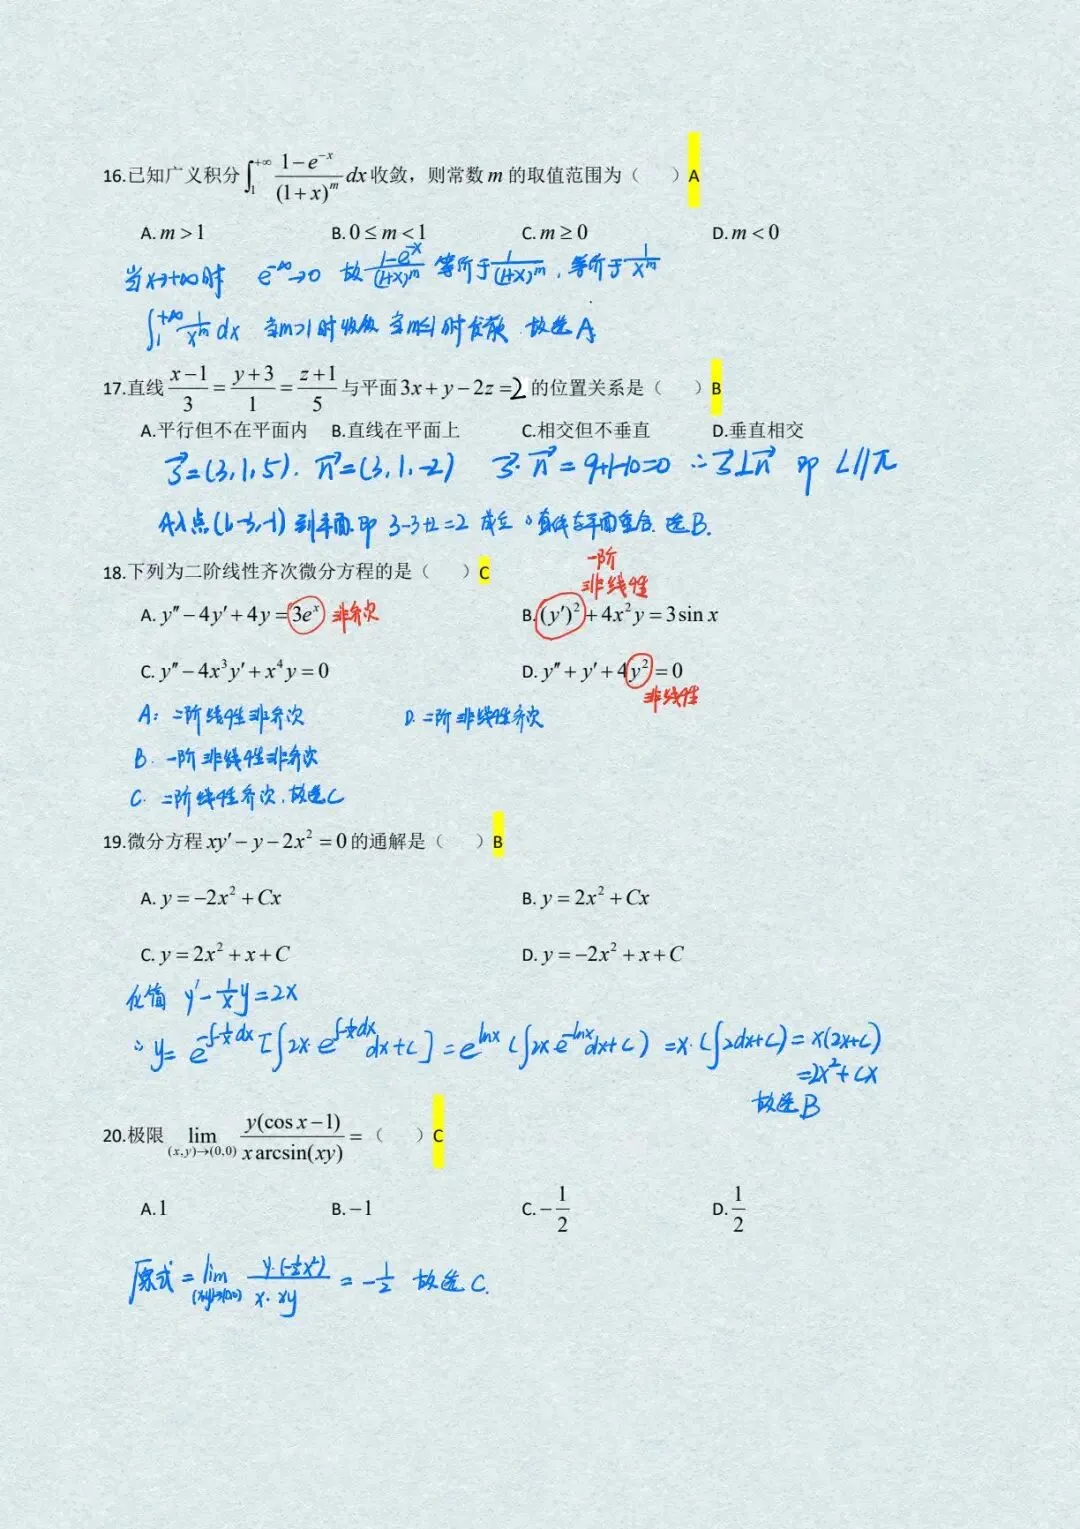 16.已知广义积分∫₁^{+∞} (1−e^{−x})/(1+x)^m dx 收敛，则常数 m 的取值范围为（　　）A
A. m > 1　B. 0 ≤ m < 1　C. m ≥ 0　D. m < 0
当x→+∞时　e^{-∞}→0　故 (1-e^{-x})/(1+x)^m 等价于 1/(1+x)^m，等价于 1/x^m
∫₁^{+∞} 1/x^m dx　当m>1时收敛 当m≤1时发散. 故选A
17.直线 (x−1)/3 = (y+3)/1 = (z+1)/5 与平面 3x + y − 2z = 2 的位置关系是（　　）B
A.平行但不在平面内　B.直线在平面上　C.相交但不垂直　D.垂直相交
s⃗=(3,1,5). n⃗=(3,1,-2)　s⃗·n⃗=9+1-10=0 ∴s⃗⊥n⃗ 即 L//π
代入点(1,-3,-1)到平面.即 3-3+2=2 成立 ∴直线与平面重合. 选B.
18.下列为二阶线性齐次微分方程的是（　　）C
一阶
非线性
A. y″ − 4y′ + 4y = 3e^x 非齐次　B. (y′)² + 4x²y = 3sin x
C. y″ − 4x³y′ + x⁴y = 0　D. y″ + y′ + 4y² = 0
非线性
A: 二阶线性非齐次　D. 二阶非线性齐次
B. 一阶非线性非齐次
C. 二阶线性齐次.故选C
19.微分方程 xy′ − y − 2x² = 0 的通解是（　　）B
A. y = −2x² + Cx　B. y = 2x² + Cx
C. y = 2x² + x + C　D. y = −2x² + x + C
化简 y′-1/x y=2x
∴y= e^{-∫-1/x dx}[∫2x·e^{∫-1/x dx}dx+C]=e^{lnx}(∫2x e^{-lnx}dx+C) =x·(∫2dx+C)=x(2x+C)
=2x²+Cx
故选B
20.极限 lim_{(x,y)→(0,0)} y(cos x − 1)/(x arcsin(xy)) =（　　）C
A. 1　B. −1　C. −1/2　D. 1/2
原式=lim_{(x,y)→(0,0)} y·(-½x²)/(x·xy) = -1/2 故选C.